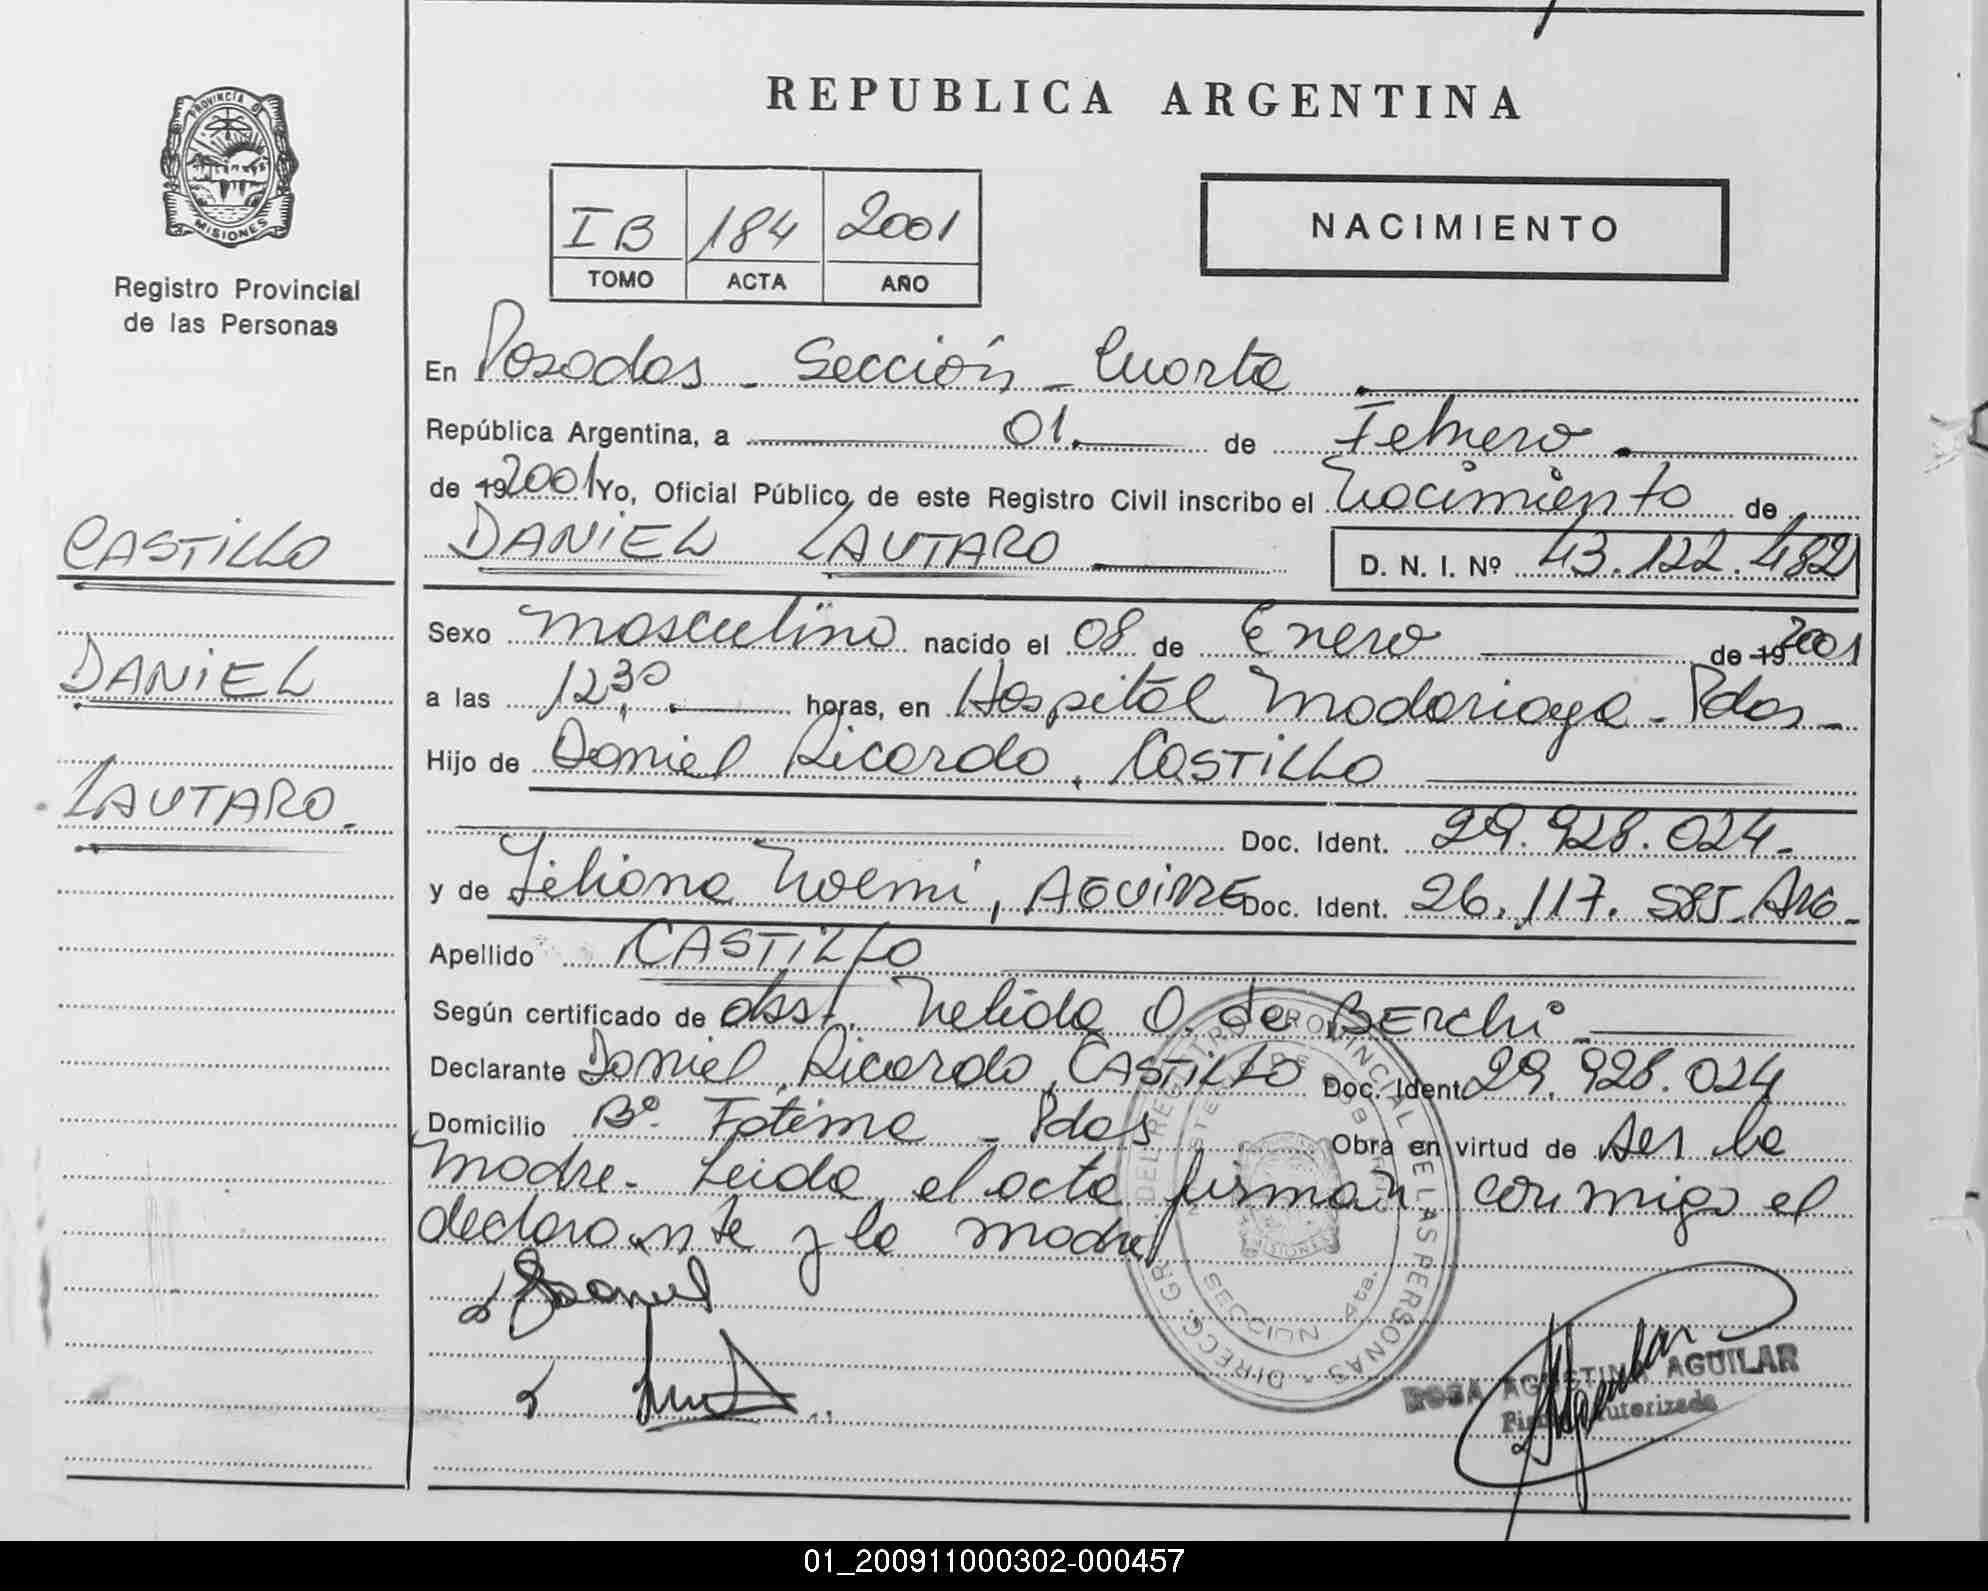 REPUBLICA ARGENTINA
PROVINCIA D
MISIONES
Registro Provincial
de las Personas
IB 184 2001
TOMO ACTA AÑO
NACIMIENTO
CASTILLO
DANIEL
LAUTARO.
En Posadas - Sección - Cuarta.
República Argentina, a 01. de Febrero.
de 192001 Yo, Oficial Público de este Registro Civil inscribo el Nacimiento de
DANIEL LAUTARO D. N. I. Nº 43.122.482
Sexo masculino nacido el 08 de Enero de 19 2001
a las 12,30. horas, en Hospital Madariaga - Pdas -
Hijo de Daniel Ricardo, CASTILLO
Doc. Ident. 29.928.024.-
y de Liliana Noemi, AGUIRRE Doc. Ident. 26.117.585- ARG-
Apellido CASTILLO
Según certificado de obst. Nelida O. de BERchi
Declarante Daniel Ricardo, CASTILLO Doc. Ident. 29.928.024
Domicilio Bº. Fátima - Pdas Obra en virtud de ser la
madre. Leida el acta firman conmigo el
declarante y la madre
Daniel
DIRECC. GR DEL REGISTRO PROVINCIAL DE LAS PERSONAS
SECCION 4ta.
MISIONES
ROSA AGUSTINA AGUILAR
Firma Autorizada
01_200911000302-000457